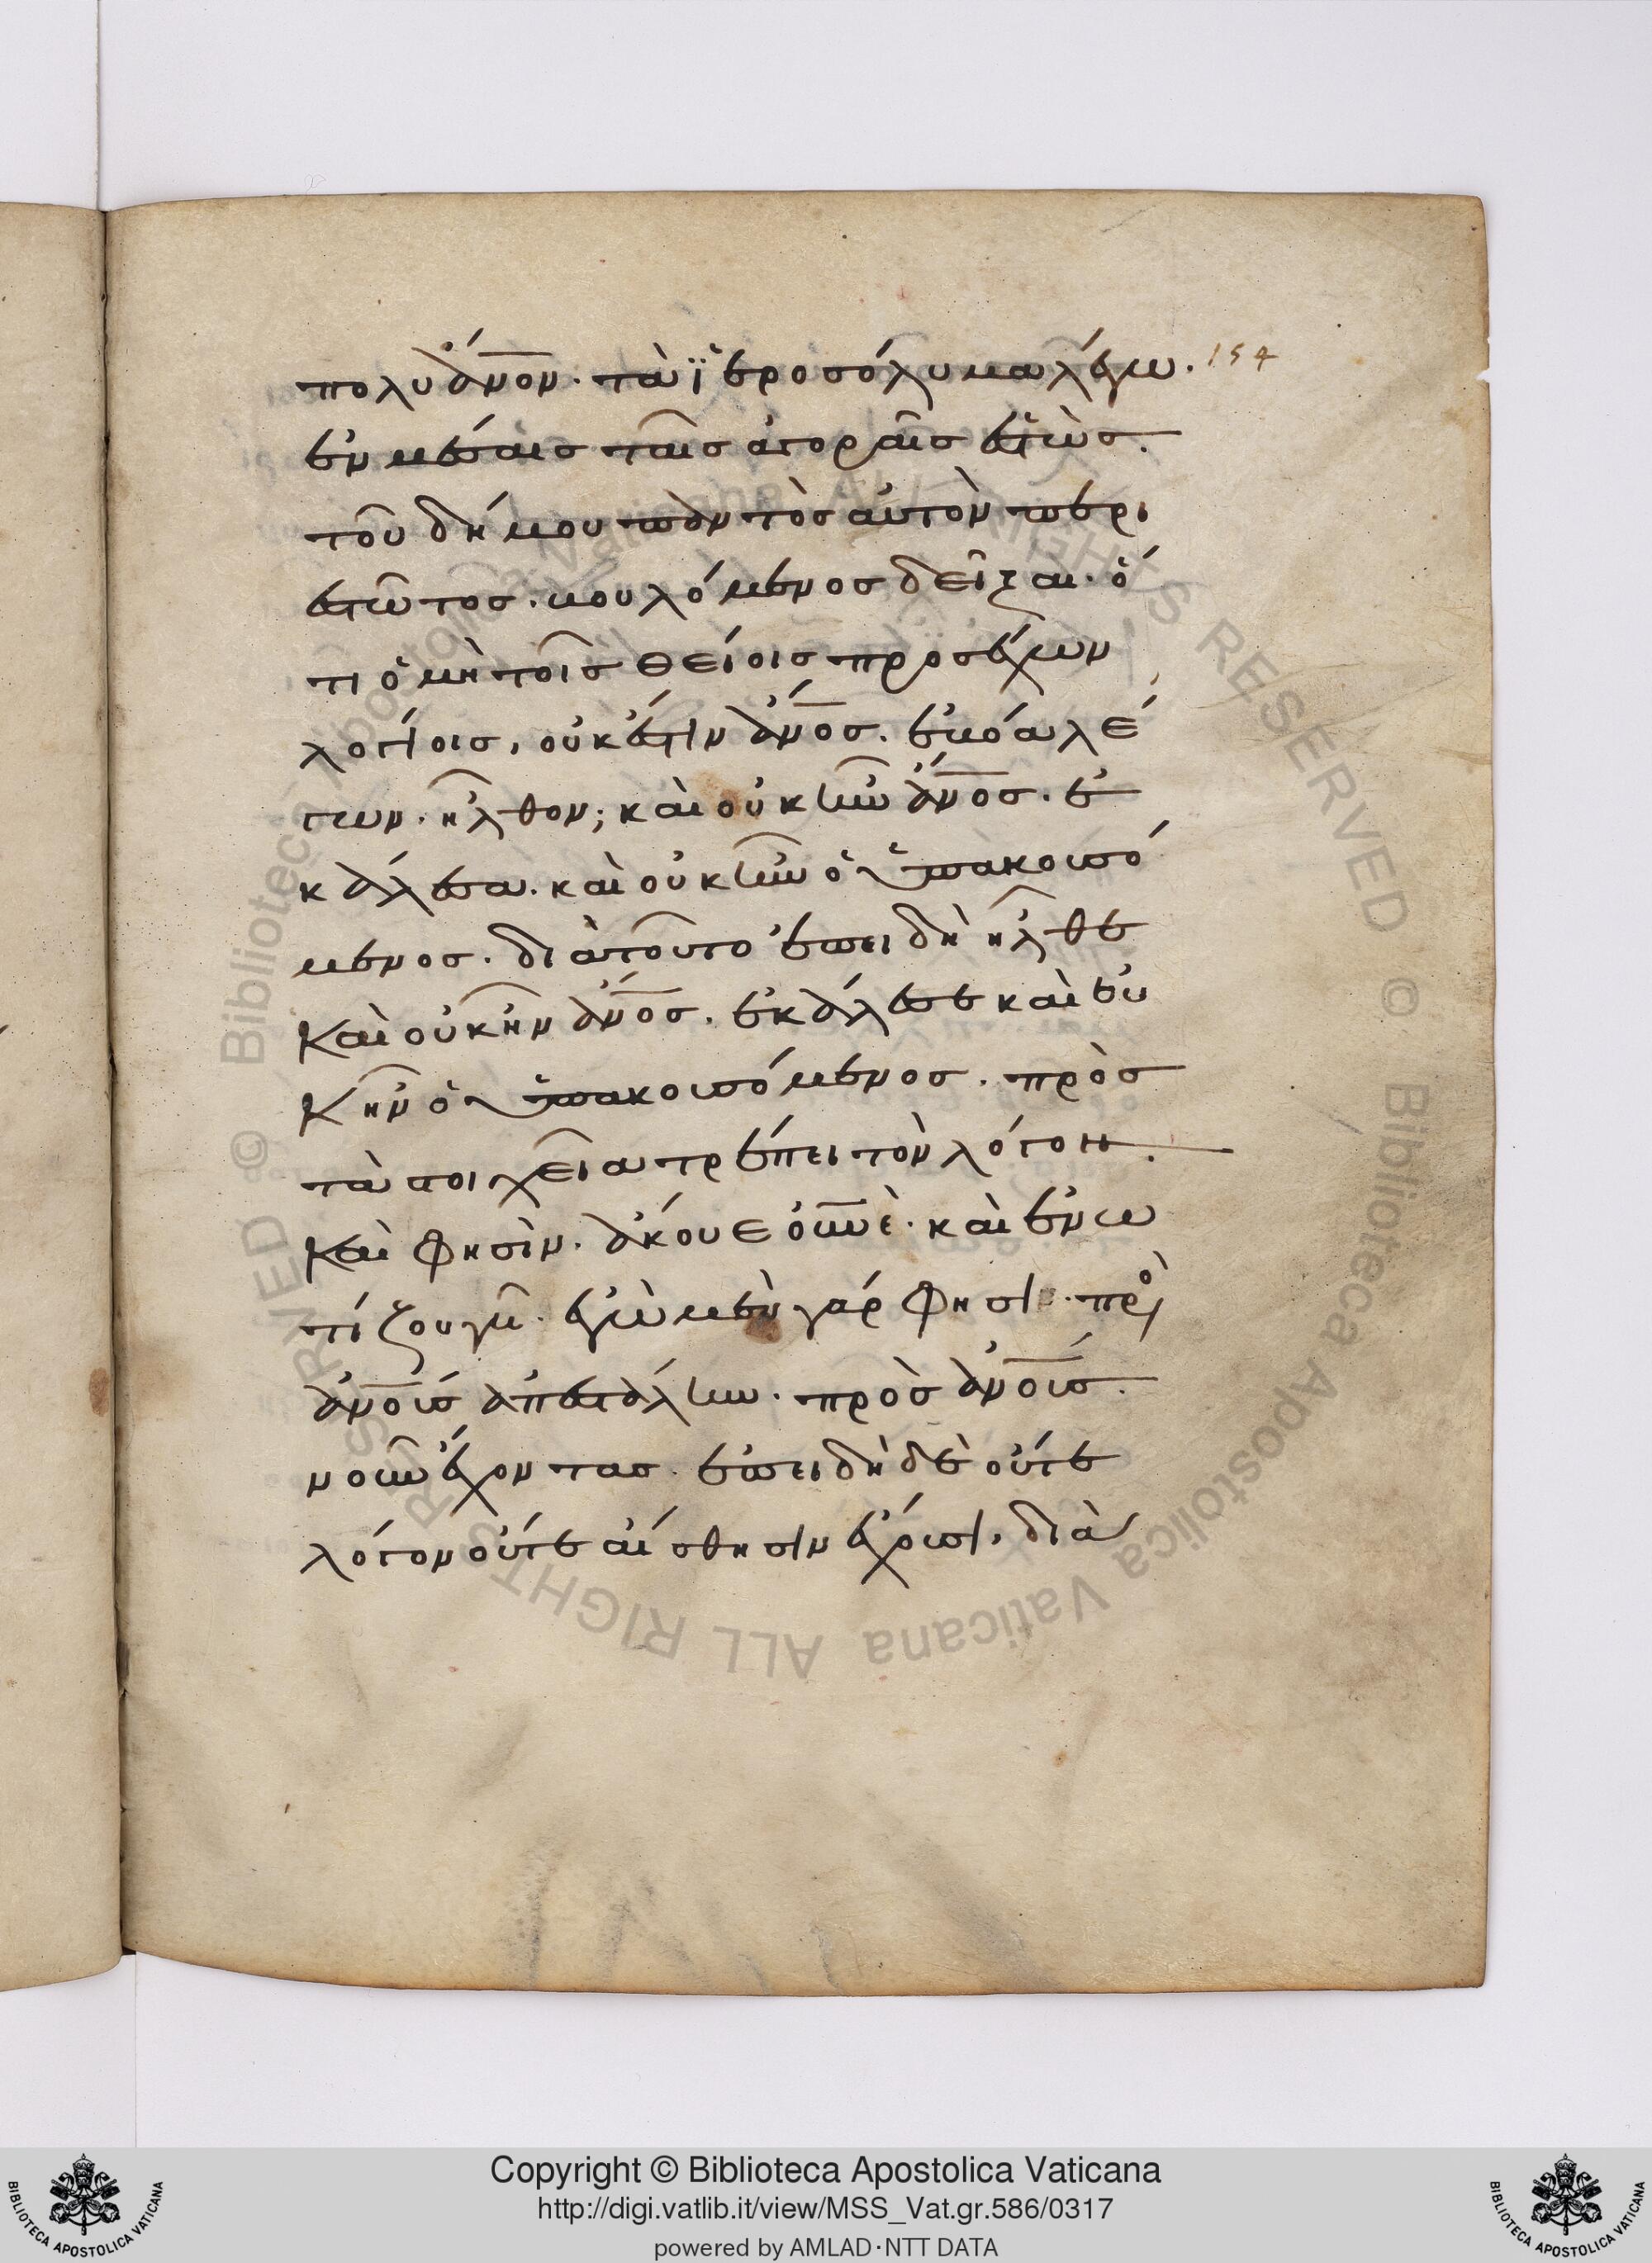 πολυάνον· τὰ ϊεροσόλυμα λέγω· 154
ἐν μέσαις ταῖς ἀγοραῖς ἑστὼς.
τοῦ δήμου παντὸς αὐτὸν περι
εστῶτος. βουλόμενος δεῖξαι· ὅ
τι ὁ μὴ τοῖς θείοις προσέχων
λογίοις, οὐκ ἔστιν ἄνος. ἐβόα λέ
γων. ἦλθον; καὶ οὐκ ἦν ἄνος. ἐ
κάλεσα. καὶ οὐκ ἦν ὁ ὑπακουσό
μενος. διατοῦτο ἐπειδὴ ἦλθε
καὶ οὐκ ἦν ἄνος. ἐκάλεσε καὶ οὐ
κ ἦν ὁ ὑπακουσόμενος. πρὸς
τὰ στοιχεῖα τρέπει τὸν λόγον.
καὶ φησὶν. ἄκουε οὐνέ· καὶ ἐνω
τίζου γῆ. ἐγὼ μὲν γάρ φησι· πρὸ
ἀνους ἀπεστάλην. πρὸς ἀνους.
νοῦν ἔχοντας. ἐπειδὴ δὲ οὔτε
λόγον οὔτε αἴσθησιν ἔχουσι, διὰ
Copyright © Biblioteca Apostolica Vaticana
http://digi.vatlib.it/view/MSS_Vat.gr.586/0317
powered by AMLAD·NTT DATA
BIBLIOTECA APOSTOLICA VATICANA
BIBLIOTECA APOSTOLICA VATICANA
© Biblioteca Apostolica Vaticana ALL RIGHTS RESERVED © Biblioteca Apostolica Vaticana ALL RIGHTS RESERVED